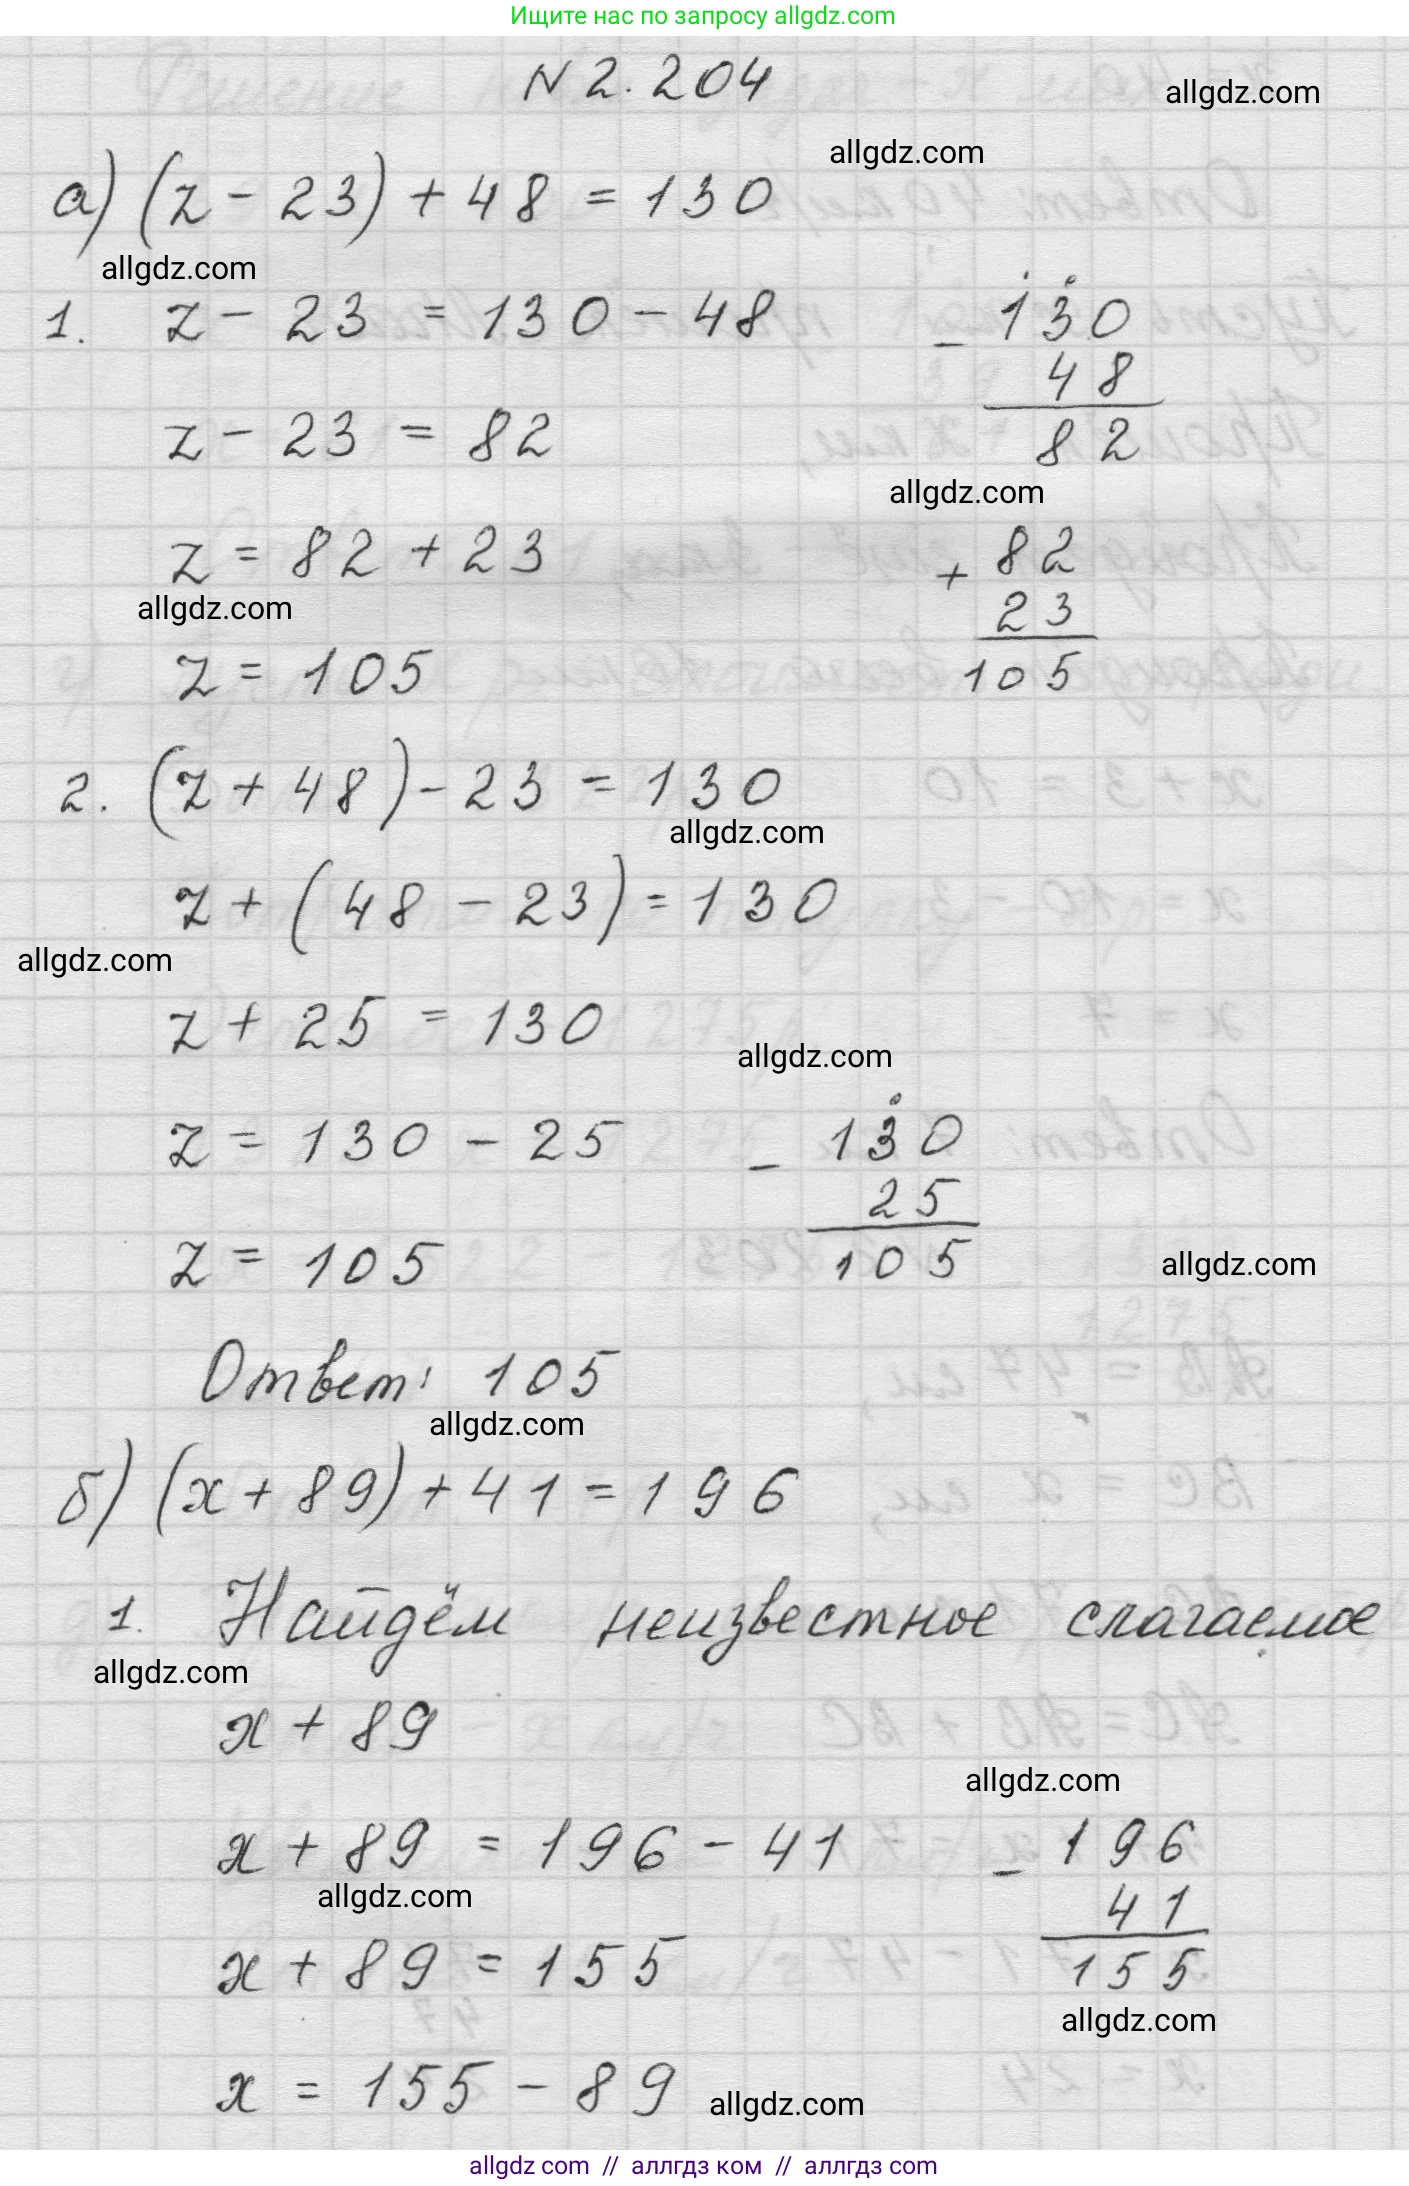 Ищите нас по запросу allgdz.com
N 2.204
allgdz.com
allgdz.com
а) (z - 23) + 48 = 130
allgdz.com
1. z - 23 = 130 - 48
- 130
48
82
z - 23 = 82
allgdz.com
z = 82 + 23
+ 82
23
105
allgdz.com
z = 105
2. (z + 48) - 23 = 130
allgdz.com
z + (48 - 23) = 130
allgdz.com
z + 25 = 130
allgdz.com
z = 130 - 25
- 130
25
105
z = 105
allgdz.com
Ответ: 105
allgdz.com
б) (x + 89) + 41 = 196
1. Найдём неизвестное слагаемое
allgdz.com
x + 89
allgdz.com
x + 89 = 196 - 41
- 196
41
155
allgdz.com
x + 89 = 155
allgdz.com
x = 155 - 89
allgdz.com
allgdz com // аллгдз ком // аллгдз com